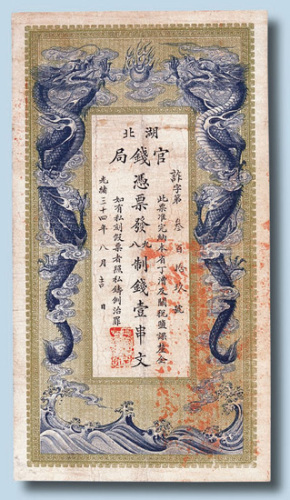 湖北
官錢局
字第叁百拾玖號
此票准完納本省丁漕及關稅鹽課釐金
憑票發九八制錢壹串文
如有私刻假票者照私鑄例治罪
光緒三十四年八月吉日